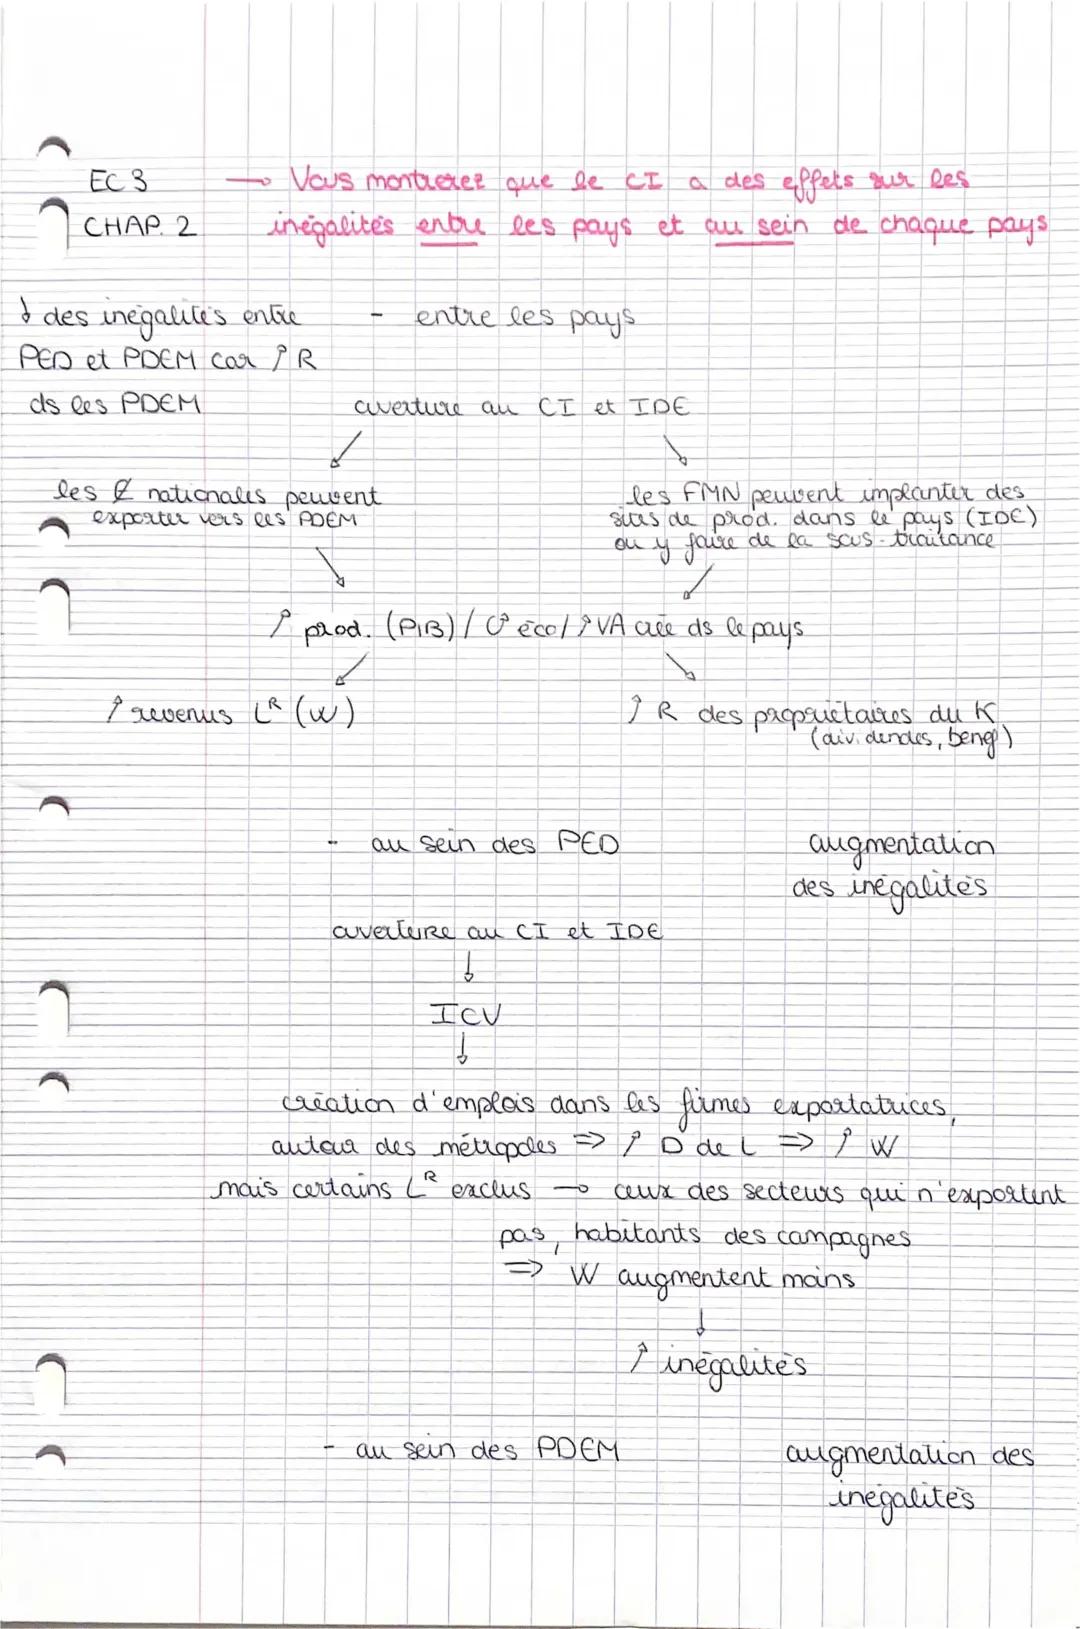 EC 3 → Vous montrerez que le CI a des effets sur les
CHAP. 2 inégalités entre les pays et au sein de chaque pays
↓ des inégalités entre - entre les pays
PED et PDEM car ↑ R
ds les PDEM ouverture au CI et IDE
les E nationales peuvent
exporter vers les PDEM
les FMN peuvent implanter des
sites de prod. dans le pays (IDE)
ou y faire de la sous-traitance
↑ prod. (PIB) / C° éco / ↑ VA créé ds le pays
↑ revenus Lᴿ (W) ↑ R des propriétaires du K
(dividendes, bénef)
- au sein des PED augmentation
des inégalités
ouverture au CI et IDE
↓
ICV
↓
création d'emplois dans les firmes exportatrices,
autour des métropoles ⇒ ↑ D de L ⇒ ↑ W
mais certains Lᴿ exclus → ceux des secteurs qui n'exportent
pas, habitants des campagnes
⇒ W augmentent moins
↓
↑ inégalités
- au sein des PDEM augmentation des
inégalités